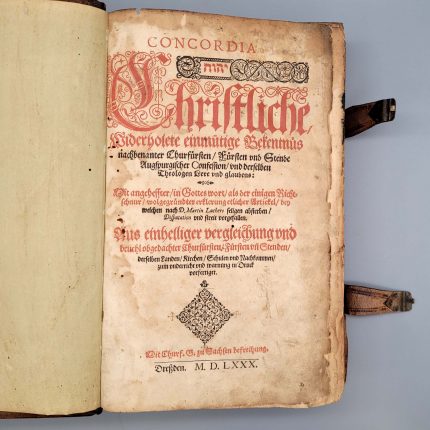 CONCORDIA
יהוה
Christliche,
Widerholete einmütige Bekentnüs
nachbenanter Churfürsten / Fürsten vnd Stende
Augspurgischer Confession / vnd derselben
Theologen Lere vnd glaubens:
Mit angeheffter / in Gottes wort / als der einigen Richt-
schnur / wolgegründter erklerung etlicher Artickel / bey
welchen nach D. Martin Luthers seligen absterben /
Disputation vnd streit vorgefallen.
Aus einhelliger vergleichung vnd
beuehl obgedachter Churfürsten / Fürsten vñ Stenden /
derselben Landen / Kirchen / Schulen vnd Nachkommen /
zum vnderricht vnd warnung in Druck
vorfertiget.
Mit Churf. G. zu Sachsen befreihung.
Dreßden. M. D. LXXX.